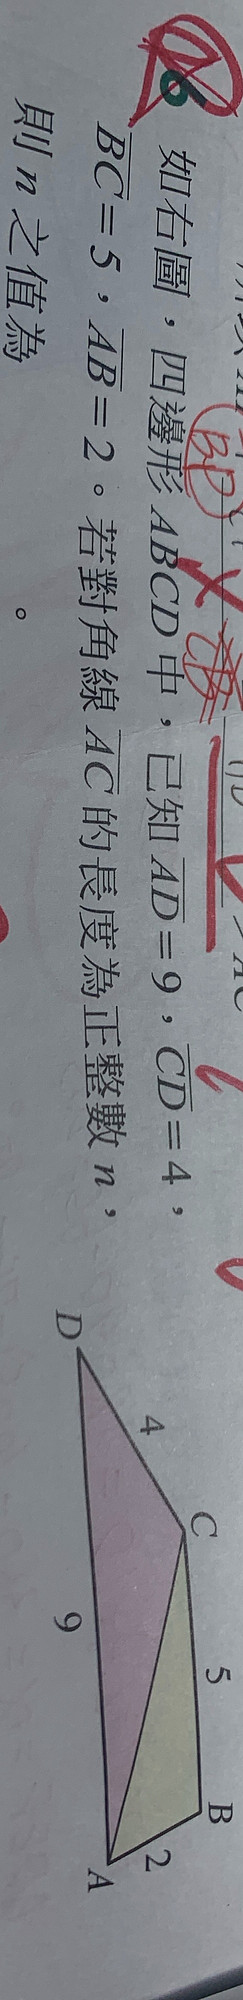 BP
6 如右圖,四邊形ABCD中,已知AD=9,CD=4,
BC=5,AB=2。若對角線AC的長度為正整數n,
則n之值為 。
D
4
C
5
B
2
A
9